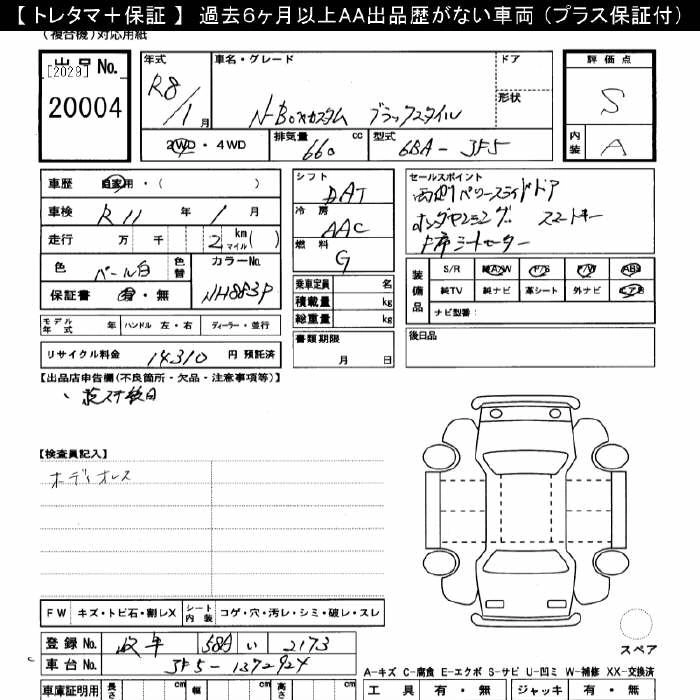 【 トレタマ＋保証 】 過去６ヶ月以上ＡＡ出品歴がない車両（プラス保証付）
（複合機）対応用紙
出品 No. [2029] 20004
年式 R8/1 月
車名・グレード N-BOXカスタム ブラックスタイル
ドア
形状
評価点 S
内装 A
2WD・4WD 排気量 660 cc 型式 6BA-JF5
車歴 自家用・( )
車検 R11 年 1 月
走行 万 千 2 km マイル ( )
色 パール白 色替 カラーNo. NH883P
保証書 有・無
モデル年式 年 ハンドル 左・右 ディーラー・並行
リサイクル料金 14310 円 預託済
シフト DAT
冷房 AAC
燃料 G
乗車定員 名
積載量 kg
総重量 kg
書類期限 月 日
セールスポイント
両側パワースライドドア
ホンダセンシング. スマートキー
前席シートヒーター
装備品 S/R 純A/W P/S P/W ABS
純TV 純ナビ 革シート 外ナビ エアB
ナビ型番：
後日品
【出品店申告欄(不良箇所・欠品・注意事項等)】
【検査員記入】
ボディオレス
FW キズ・トビ石・割レX シート内装 コゲ・穴・汚レ・シミ・破レ・スレ
登録 No. 岐阜 582 い 2173
車台 No. JF5-1372924
スペア
A-キズ C-腐食 E-エクボ S-サビ U-凹ミ W-補修 XX-交換済
車庫証明用 長さ cm 幅 cm 高さ cm
工具 有・無 ジャッキ 有・無